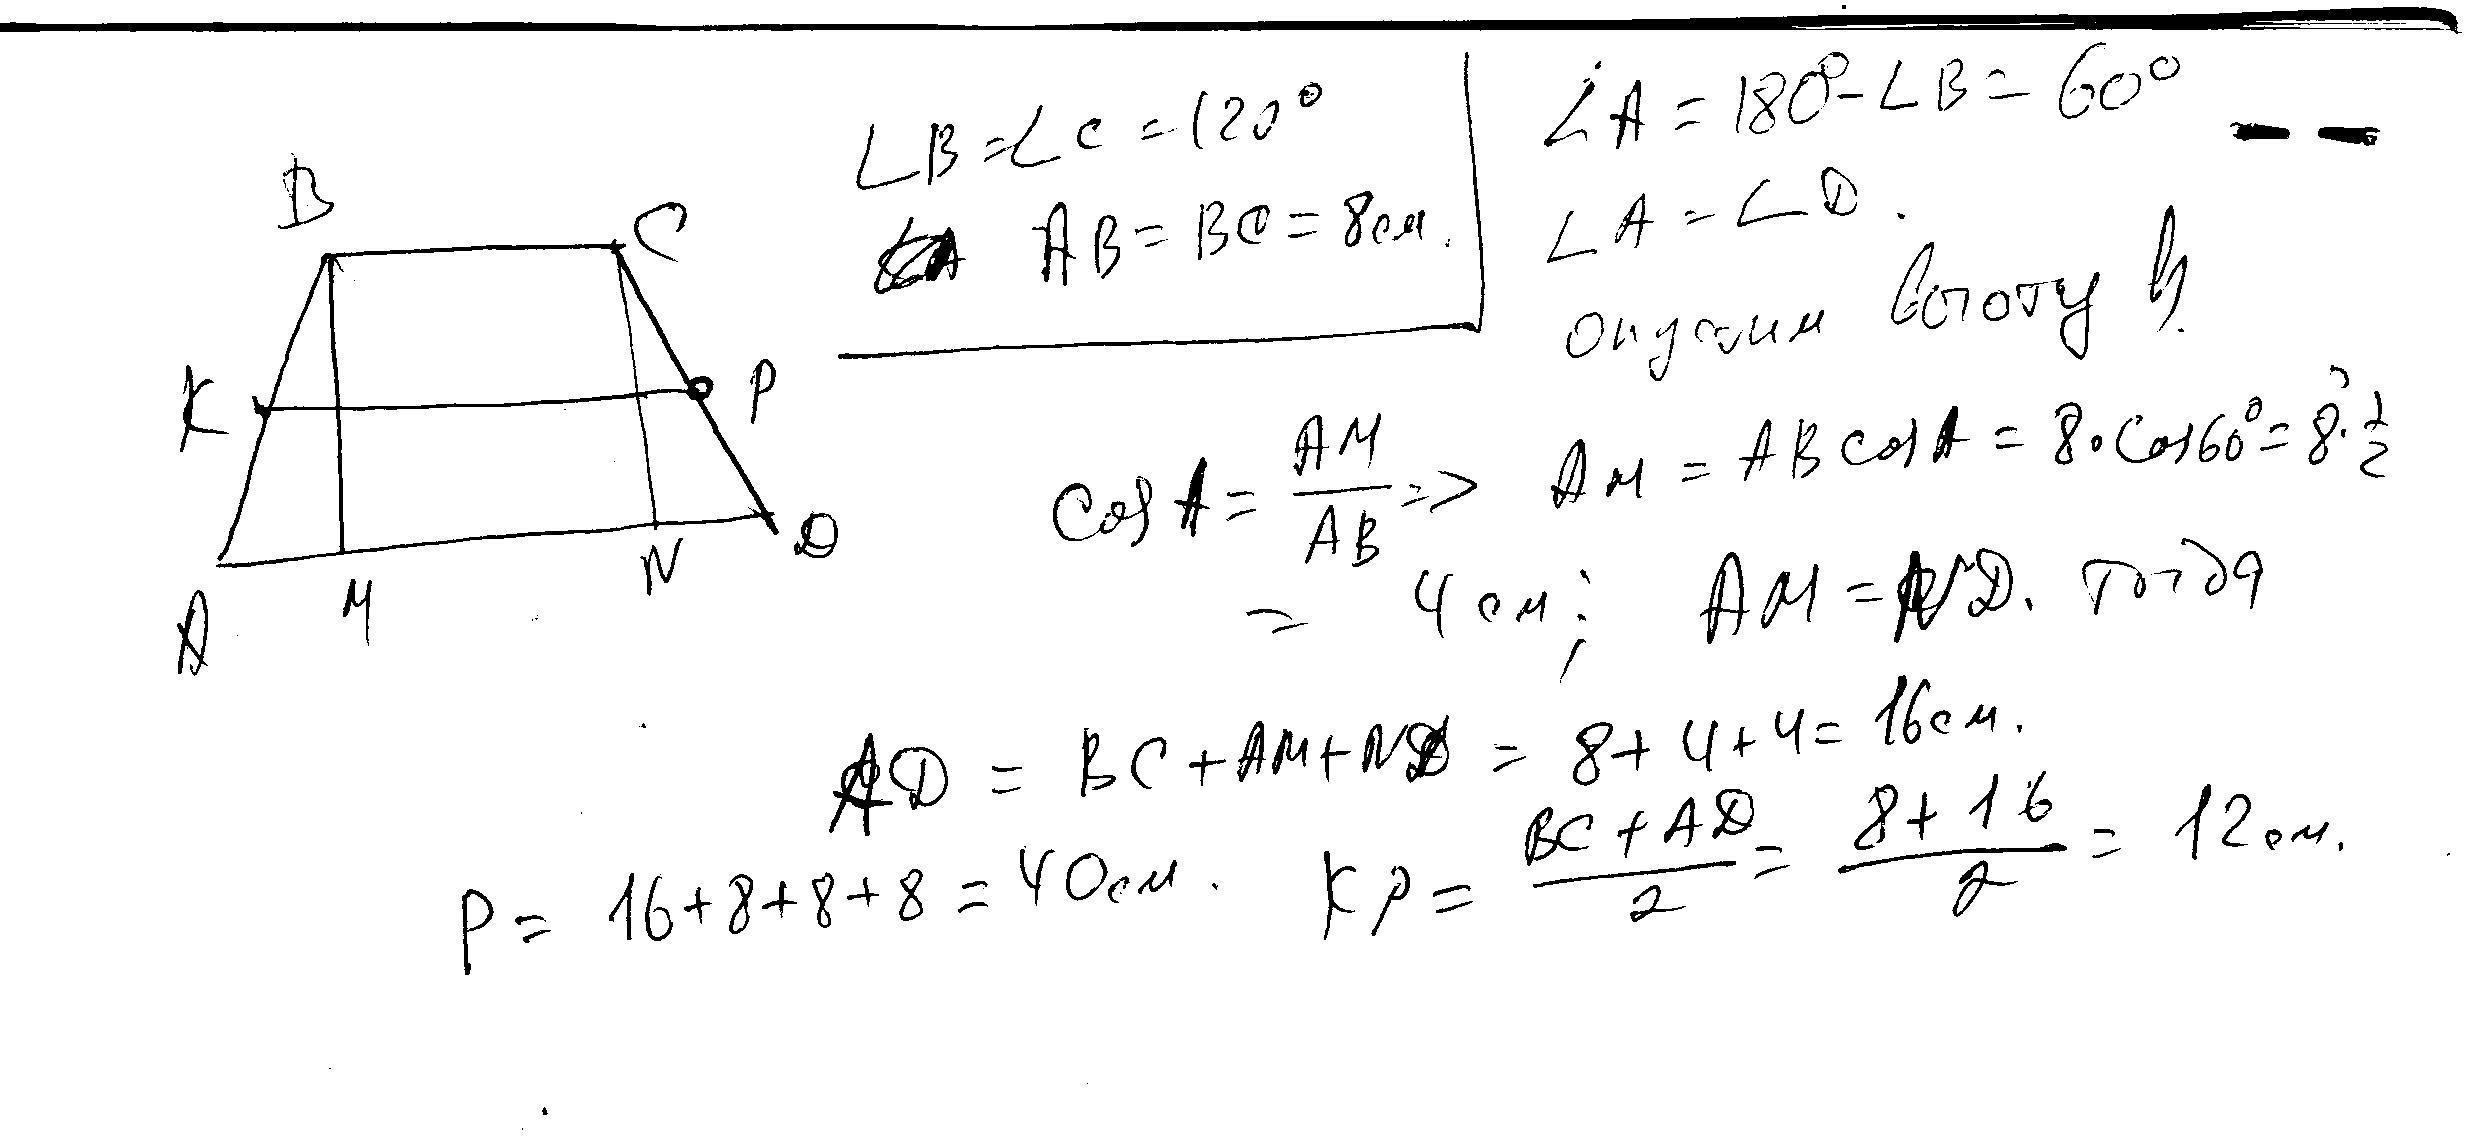 B
C
K
P
A
M
N
D
∠B=∠C=120°
AB=BC=8см.
∠A=180°-∠B=60°
∠A=∠D.
опустим высоту h.
cos A = AM/AB => AM = AB cos A = 8·cos60° = 8·1/2
= 4 см; AM = ND. тогда
AD = BC+AM+ND = 8+4+4= 16см.
P= 16+8+8+8=40см. KP= (BC+AD)/2 = (8+16)/2 = 12см.